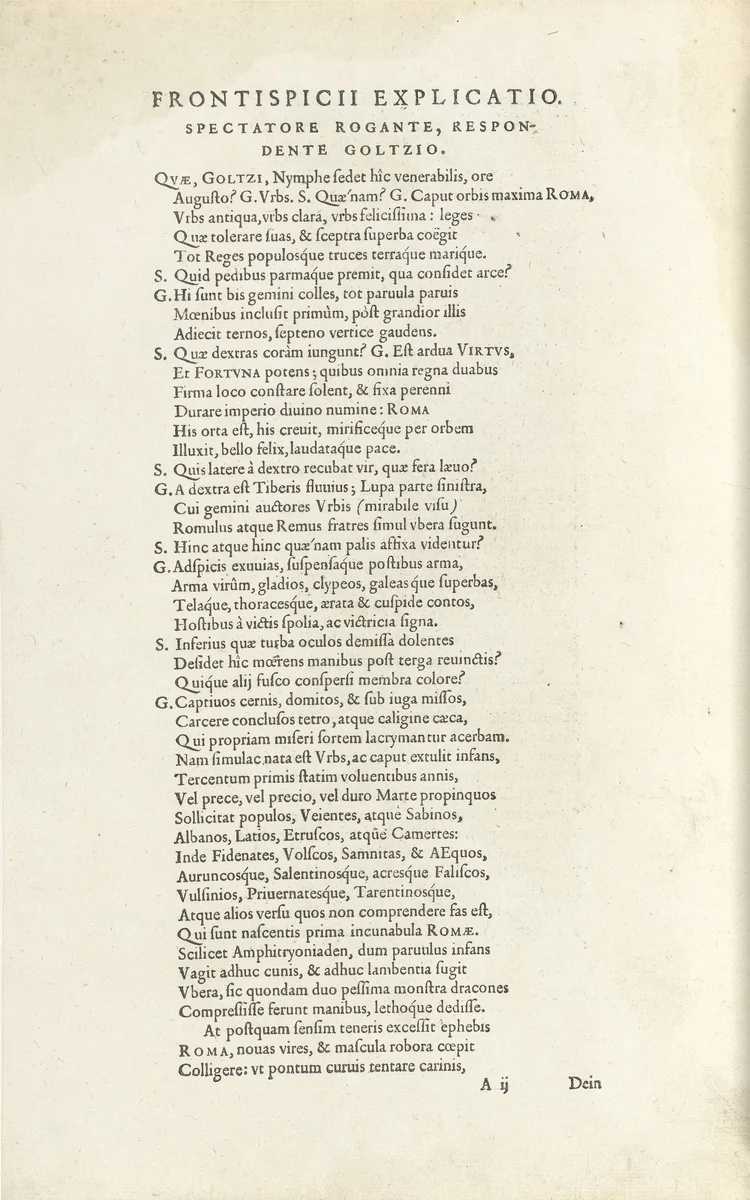 FRONTISPICII EXPLICATIO.
SPECTATORE ROGANTE, RESPON-
DENTE GOLTZIO.
QVÆ, GOLTZI, Nymphe ſedet hîc venerabilis, ore
Auguſto? G. Vrbs. S. Quæ'nam? G. Caput orbis maxima ROMA,
Vrbs antiqua, vrbs clara, vrbs feliciſſima: leges
Quæ tolerare ſuas, & ſceptra ſuperba coëgit
Tot Reges populosque truces terraque marique.
S. Quid pedibus parmaque premit, qua conſidet arce?
G. Hi ſunt bis gemini colles, tot paruula paruis
Mœnibus incluſit primùm, pòſt grandior illis
Adiecit ternos, ſepteno vertice gaudens.
S. Quæ dextras coràm iungunt? G. Eſt ardua VIRTVS,
Et FORTVNA potens; quibus omnia regna duabus
Firma loco conſtare ſolent, & fixa perenni
Durare imperio diuino numine: ROMA
His orta eſt, his creuit, mirificeque per orbem
Illuxit, bello felix, laudataque pace.
S. Quis latere à dextro recubat vir, quæ fera læuo?
G. A dextra eſt Tiberis fluuius; Lupa parte ſiniſtra,
Cui gemini auctores Vrbis (mirabile viſu)
Romulus atque Remus fratres ſimul vbera ſugunt.
S. Hinc atque hinc quæ'nam palis affixa videntur?
G. Adſpicis exuuias, ſuſpenſaque poſtibus arma,
Arma virûm, gladios, clypeos, galeasque ſuperbas,
Telaque, thoracesque, ærata & cuſpide contos,
Hoſtibus à victis ſpolia, ac victricia ſigna.
S. Inferius quæ turba oculos demiſſa dolentes
Deſidet hîc mœrens manibus poſt terga reuinctis?
Quique alij fuſco conſperſi membra colore?
G. Captiuos cernis, domitos, & ſub iuga miſſos,
Carcere concluſos tetro, atque caligine cæca,
Qui propriam miſeri ſortem lacrymantur acerbam.
Nam ſimulac nata eſt Vrbs, ac caput extulit infans,
Tercentum primis ſtatim voluentibus annis,
Vel prece, vel precio, vel duro Marte propinquos
Sollicitat populos, Veientes, atque Sabinos,
Albanos, Latios, Etruſcos, atque Camertes:
Inde Fidenates, Volſcos, Samnitas, & AEquos,
Auruncosque, Salentinosque, acresque Faliſcos,
Vulſinios, Priuernatesque, Tarentinosque,
Atque alios verſu quos non comprendere fas eſt,
Qui ſunt naſcentis prima incunabula ROMÆ.
Scilicet Amphitryoniaden, dum paruulus infans
Vagit adhuc cunis, & adhuc lambentia ſugit
Vbera, ſic quondam duo peſſima monſtra dracones
Compreſſiſſe ferunt manibus, lethoque dediſſe.
At poſtquam ſenſim teneris exceſſit ephebis
ROMA, nouas vires, & maſcula robora cœpit
Colligere: vt pontum curuis tentare carinis,
A ij Dein